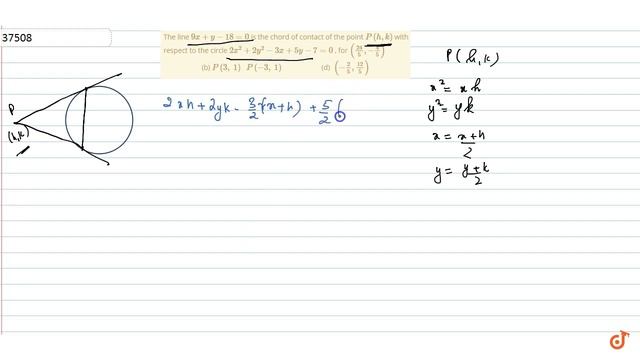 37508
The line 9x + y − 18 = 0 is the chord of contact of the point P(h, k) with
respect to the circle 2x² + 2y² − 3x + 5y − 7 = 0, for (24/5, −4/5)
(b) P(3, 1) P(−3, 1) (d) (−2/5, 12/5)
P(h,k)
x² = xh
y² = yk
x = x+h/2
y = y+k/2
2xh + 2yk - 3/2(x+h) + 5/2(
P
(h,k)
d